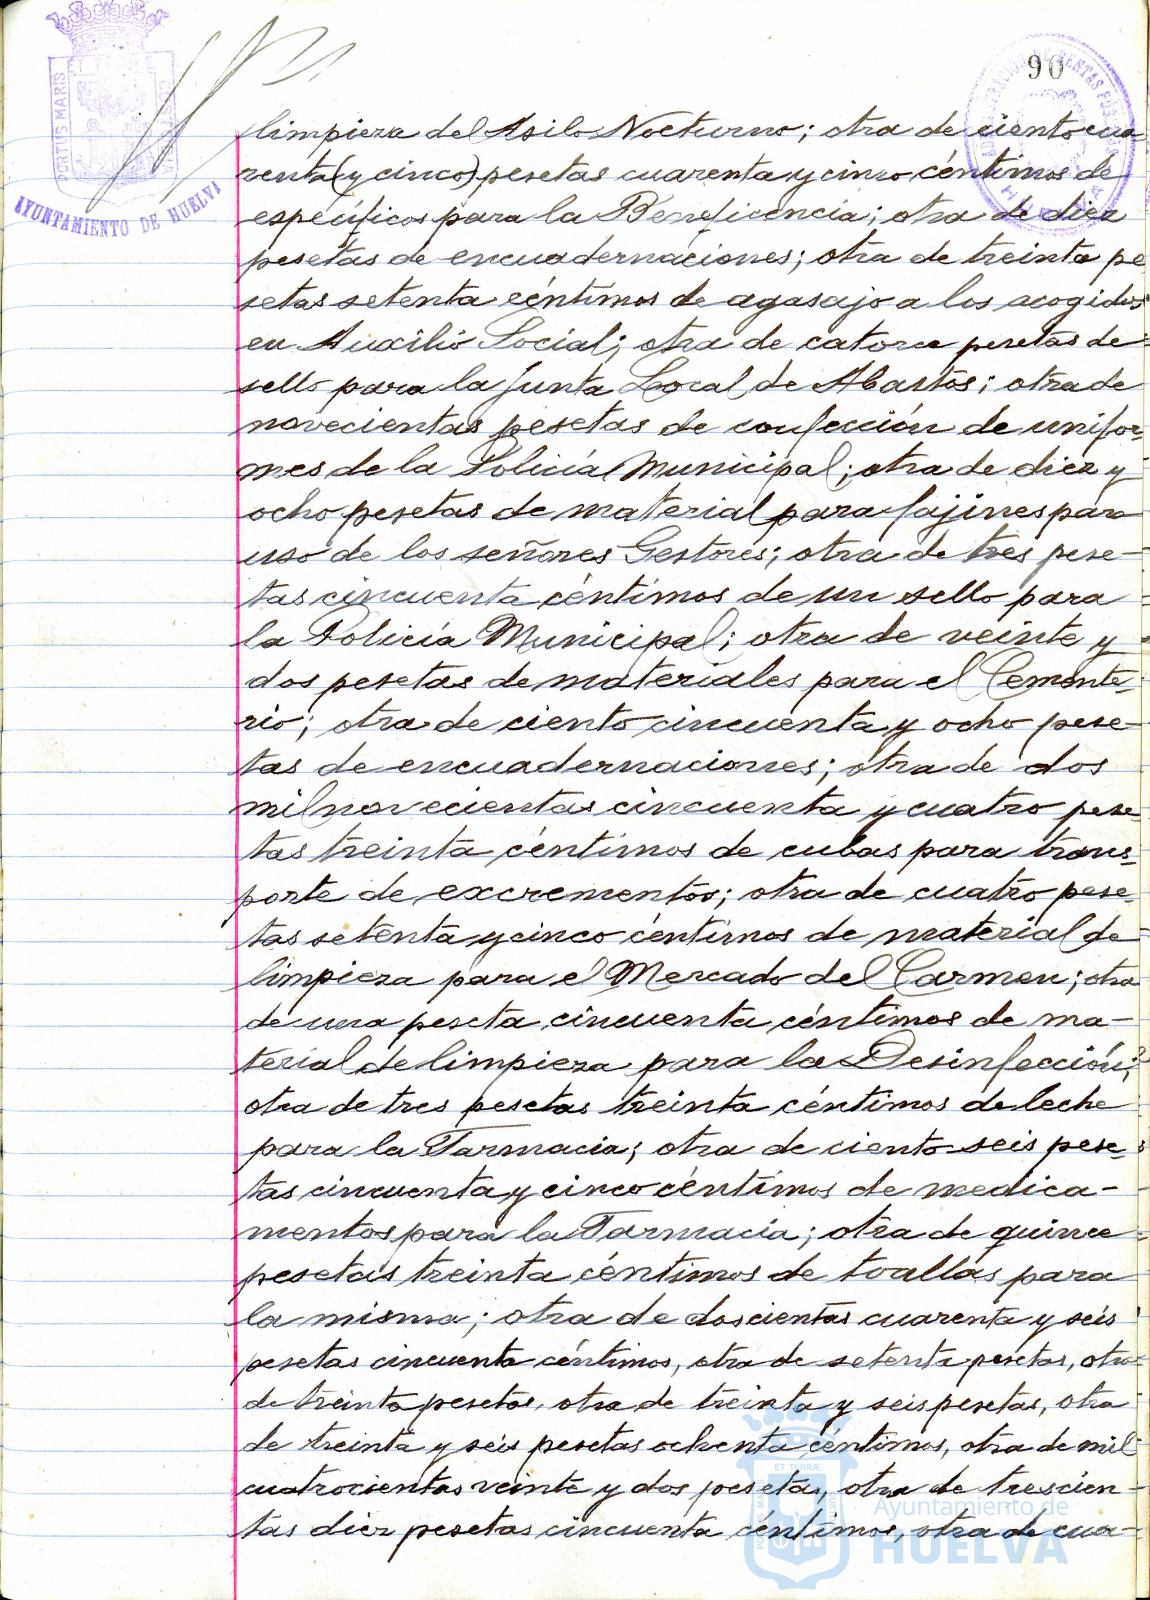 90
PORTUS MARIS
AYUNTAMIENTO DE HUELVA
limpieza del Asilo Nocturno; otra de ciento cua
renta (y cinco) pesetas cuarenta y cinco céntimos de
específicos para la Beneficencia; otra de diez
pesetas de encuadernaciones; otra de treinta pe
setas setenta céntimos de agasajo a los acogidos
en Auxilio Social; otra de catorce pesetas de
sello para la Junta Local de Abastos; otra de
novecientas pesetas de confección de unifor-
mes de la Policía Municipal; otra de diez y
ocho pesetas de material para fajines para
uso de los señores Gestores; otra de tres pese-
tas cincuenta céntimos de un sello para
la Policía Municipal; otra de veinte y
dos pesetas de materiales para el Cemente-
rio; otra de ciento cincuenta y ocho pese-
tas de encuadernaciones; otra de dos
mil novecientas cincuenta y cuatro pese-
tas treinta céntimos de cubas para trans-
porte de excrementos; otra de cuatro pese-
tas setenta y cinco céntimos de material de
limpieza para el Mercado del Carmen; otra
de una peseta cincuenta céntimos de ma-
terial de limpieza para la Desinfección;
otra de tres pesetas treinta céntimos de leche
para la Farmacia; otra de ciento seis pese-
tas cincuenta y cinco céntimos de medica-
mentos para la Farmacia; otra de quince
pesetas treinta céntimos de toallas para
la misma; otra de doscientas cuarenta y seis
pesetas cincuenta céntimos, otra de setenta pesetas, otra
de treinta pesetas, otra de treinta y seis pesetas, otra
de treinta y seis pesetas ochenta céntimos, otra de mil
cuatrocientas veinte y dos pesetas, otra de trescien-
tas diez pesetas cincuenta céntimos, otra de cua-
ET TERRÆ
Ayuntamiento de
HUELVA